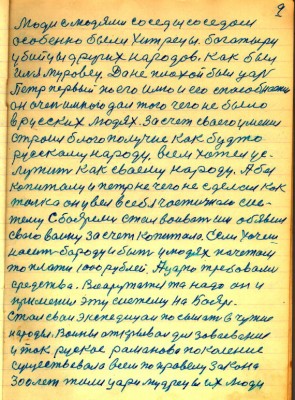 9
Люди с людями сосед и соседом
особенно были хитрецы. богатыри
убийцы других народов. Как был
Илья Муровец. Да не плохой был царь
Петр первый по его имю и его способности
он очен много дал того чего не было
в русских людях. За счет своего умения
строил благополучие как будто
рускаму народу. всем хател ус-
лужит как своему народу. А без
копиталу и петр не чего не сделал как
только он увел в себя частичною сис-
тему с боярями стал воеват им обявил
свою вайну за счет копитала. Если хочеш
насит бароду и быт у людях почетом
то плати 1000 рублей. Нужно требовали
средства. Вооружатся то надо он и
применил эту систему на бояр.
Стал сваи экспедицыи посылать в чужие
народы. Войны открывал для завоевения
и так руское романово поколение
существовала всем по правелу закона
300 лет жили цари мудрецы их люди